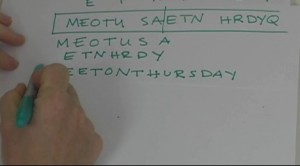 MEOTU SAETN HRDYQ
MEOTUSA
ETNHRDY
EETONTHURSDAY